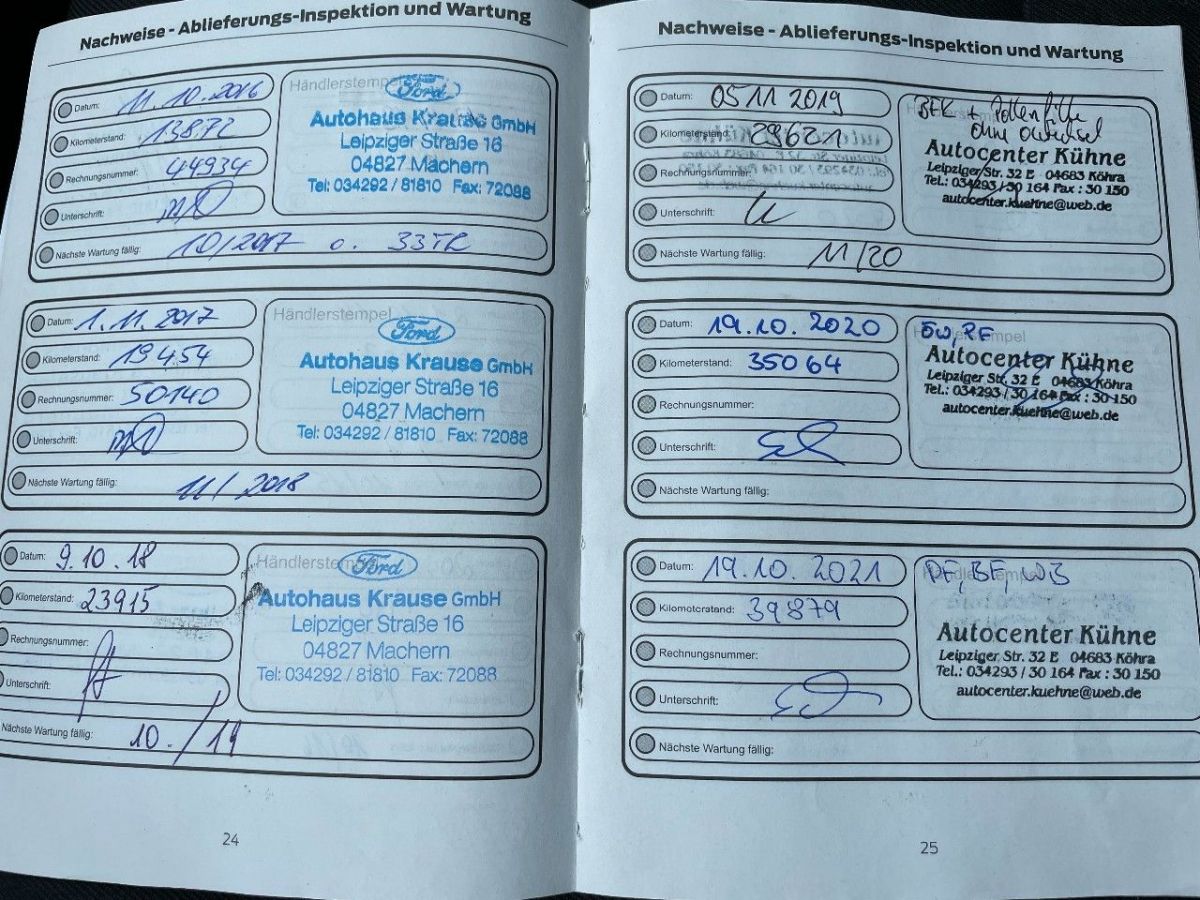 Nachweise - Ablieferungs-Inspektion und Wartung
Datum: 11.10.2016
Kilometerstand: 13872
Rechnungsnummer: 44934
Unterschrift:
Nächste Wartung fällig: 10/2017 o. 33TK
Händlerstempel
Ford
Autohaus Krause GmbH
Leipziger Straße 16
04827 Machern
Tel: 034292 / 81810 Fax: 72088
Datum: 1.11.2017
Kilometerstand: 19454
Rechnungsnummer: 50140
Unterschrift:
Nächste Wartung fällig: 11/2018
Händlerstempel
Ford
Autohaus Krause GmbH
Leipziger Straße 16
04827 Machern
Tel: 034292 / 81810 Fax: 72088
Datum: 9.10.18
Kilometerstand: 23915
Rechnungsnummer:
Unterschrift:
Nächste Wartung fällig: 10./19
Händlerstempel
Ford
Autohaus Krause GmbH
Leipziger Straße 16
04827 Machern
Tel: 034292 / 81810 Fax: 72088
24
Nachweise - Ablieferungs-Inspektion und Wartung
Datum: 05 11 2019
Kilometerstand: 29621
Rechnungsnummer:
Unterschrift:
Nächste Wartung fällig: 11/20
+ Pollenfilter
Autocenter Kühne
Leipziger Str. 32 E 04683 Köhra
Tel.: 034293 / 30 164 Fax : 30 150
autocenter.kuehne@web.de
Datum: 19.10.2020
Kilometerstand: 35064
Rechnungsnummer:
Unterschrift:
Nächste Wartung fällig:
Autocenter Kühne
Leipziger Str. 32 E 04683 Köhra
Tel.: 034293 / 30 164 Fax : 30 150
autocenter.kuehne@web.de
Datum: 19.10.2021
Kilometerstand: 39879
Rechnungsnummer:
Unterschrift:
Nächste Wartung fällig:
Autocenter Kühne
Leipziger Str. 32 E 04683 Köhra
Tel.: 034293 / 30 164 Fax : 30 150
autocenter.kuehne@web.de
25